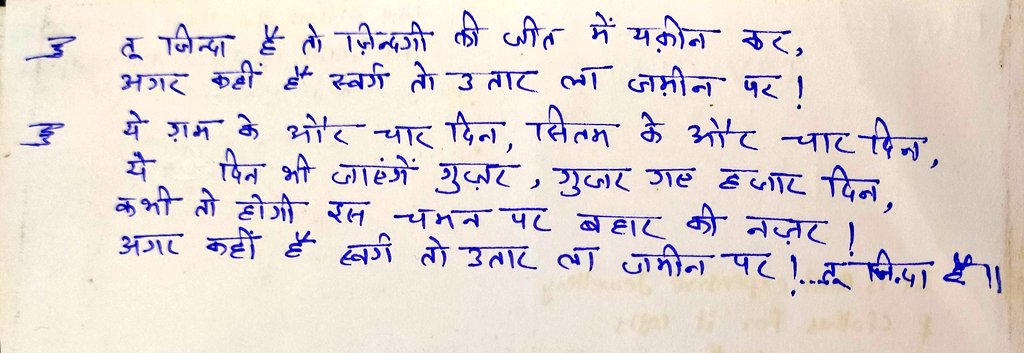 तू जिन्दा है तो ज़िन्दगी की जीत में यक़ीन कर,
अगर कहीं है स्वर्ग तो उतार ला ज़मीन पर!
ये ग़म के और चार दिन, सितम के और चार दिन,
ये दिन भी जाएंगें गुज़र, गुजर गए हजार दिन,
कभी तो होगी इस चमन पर बहार की नज़र!
अगर कहीं है स्वर्ग तो उतार ला जमीन पर!...तू जिन्दा है॥